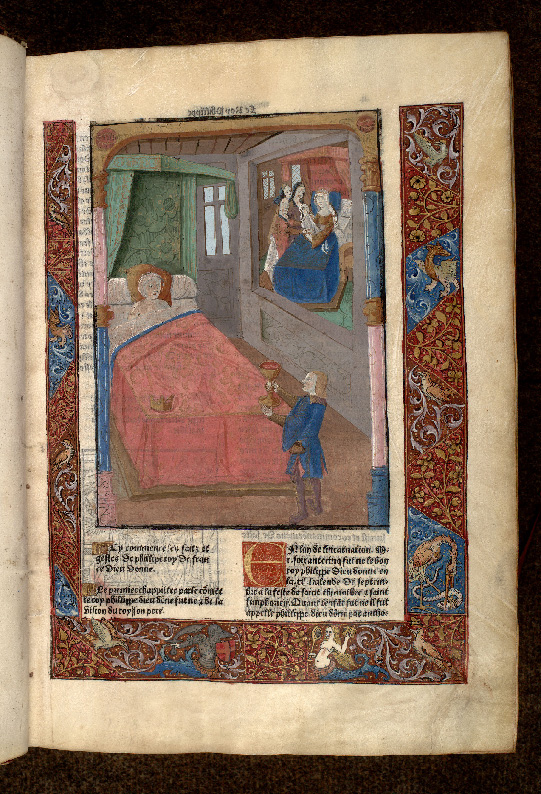 Le Roy Philippe
Cy commence les faitz et
gestes de philippe roy de fran
ce Dieu donne.
Le premier chappitre parle cōmēt
le roy philippe dieu dōne fut ne z de la
Vision du roy son pere.
EN lan de lincarnation. M.
c. soixante cinq fut ne le bon
roy philippe Dieu donne en
la .xi. kalende de septem
bre a la feste de saint thimothee z saint
simphorien. Quant lenfāt fut ne il fut
appelle philippe dieu dōne par anthō